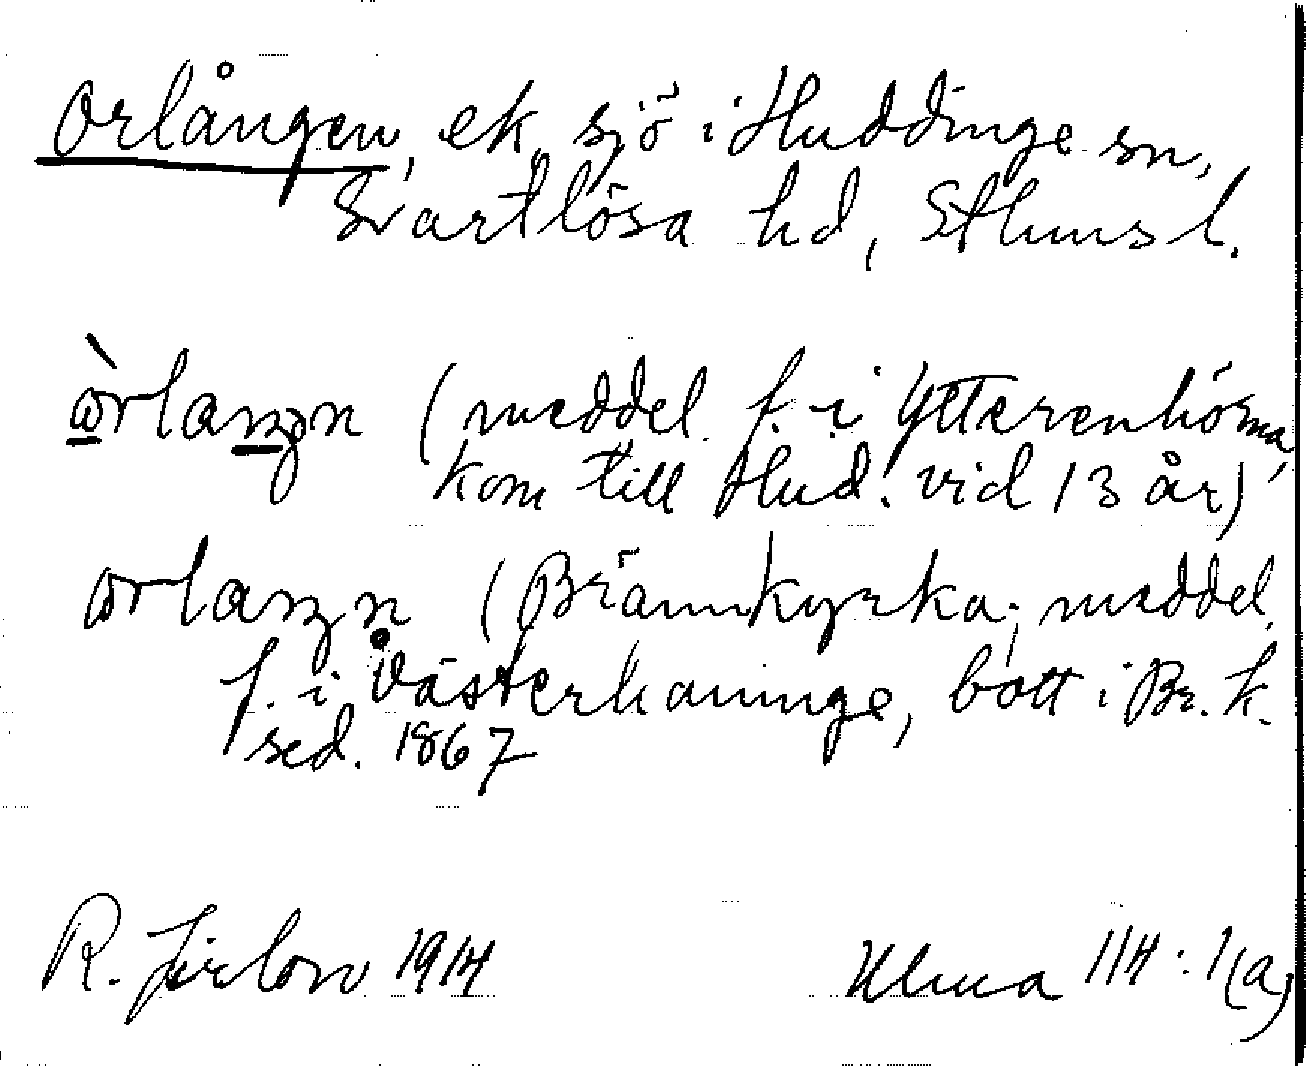 Orlången, ek, sjö i Huddinge sn,
Svartlösa hd, Sthms l.
òrlaŋn (meddel. f. i Ytterenhörna,
kom till Hud. vid 13 år)
orlaŋn (Brännkyrka; meddel.
f. i Västerhaninge, bott i Br.k.
sed. 1867
R. Jirlow 1914 Ulma 114:1(a)